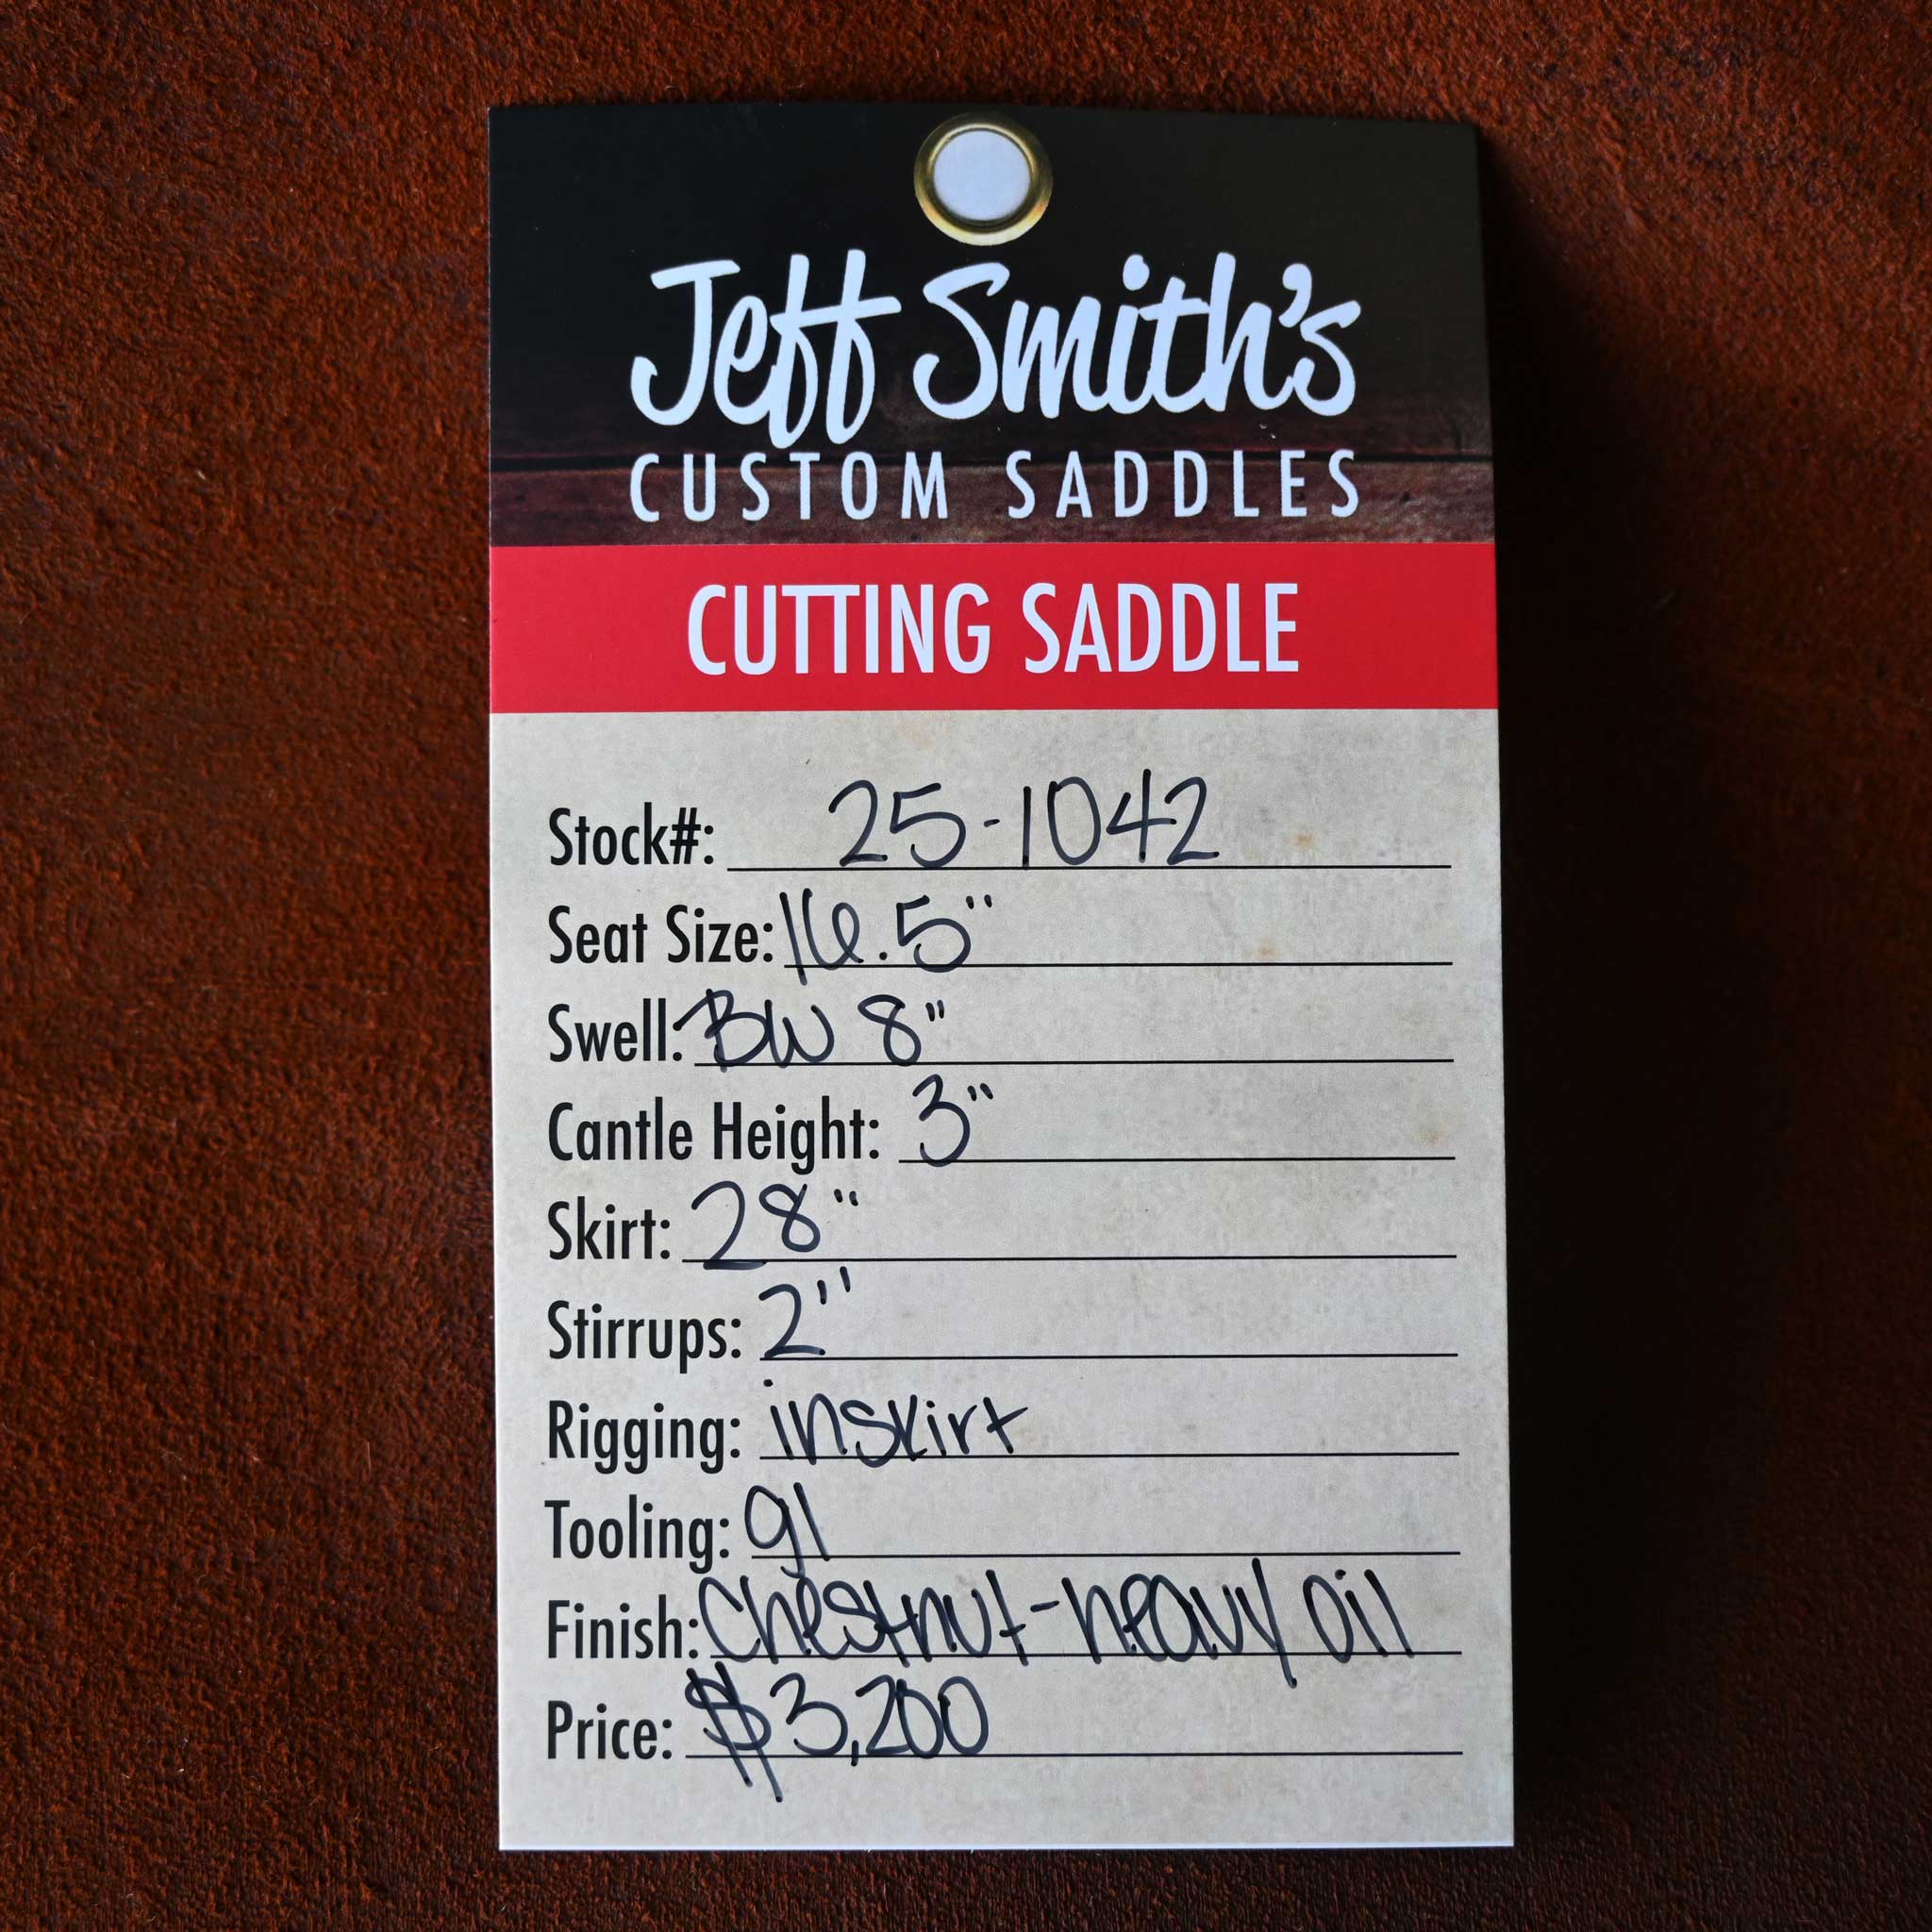 Jeff Smith's
CUSTOM SADDLES
CUTTING SADDLE
Stock#: 25-1042
Seat Size: 16.5"
Swell: BW 8"
Cantle Height: 3"
Skirt: 28"
Stirrups: 2"
Rigging: inskirt
Tooling: 91
Finish: Chestnut-heavy oil
Price: $3,200